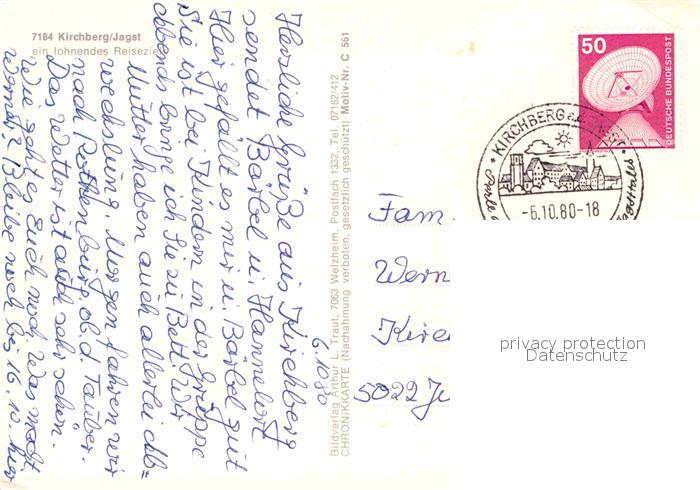 7184 Kirchberg/Jagst
ein lohnendes Reiseziel
6.10.80
Herzliche Grüße aus Kirchberg
sendet Bärbel u. Hannelore
Hier gefällt es mir u. Bärbel gut
Sie ist bei Kindern in der Gruppe
Abends bringe ich Sie zu Bett. Wir
Mütter haben auch allerlei Ab=
wechslung. Morgen fahren wir
nach Rothenburg o.d. Tauber.
Das Wetter ist auch sehr schön.
Wie geht es Euch noch. Was macht
Werner? Bleibe noch bis 16.10. hier
Bildverlag Arthur L. Traut, 7063 Welzheim, Postfach 1332, Tel. 07182/412
CHRONIKKARTE (Nachahmung verboten, gesetzlich geschützt) Motiv-Nr. C 561
50
DEUTSCHE BUNDESPOST
KIRCHBERG
-6.10.80-18
Fam.
Wern
Kirc
5022 Ju
privacy protection
Datenschutz